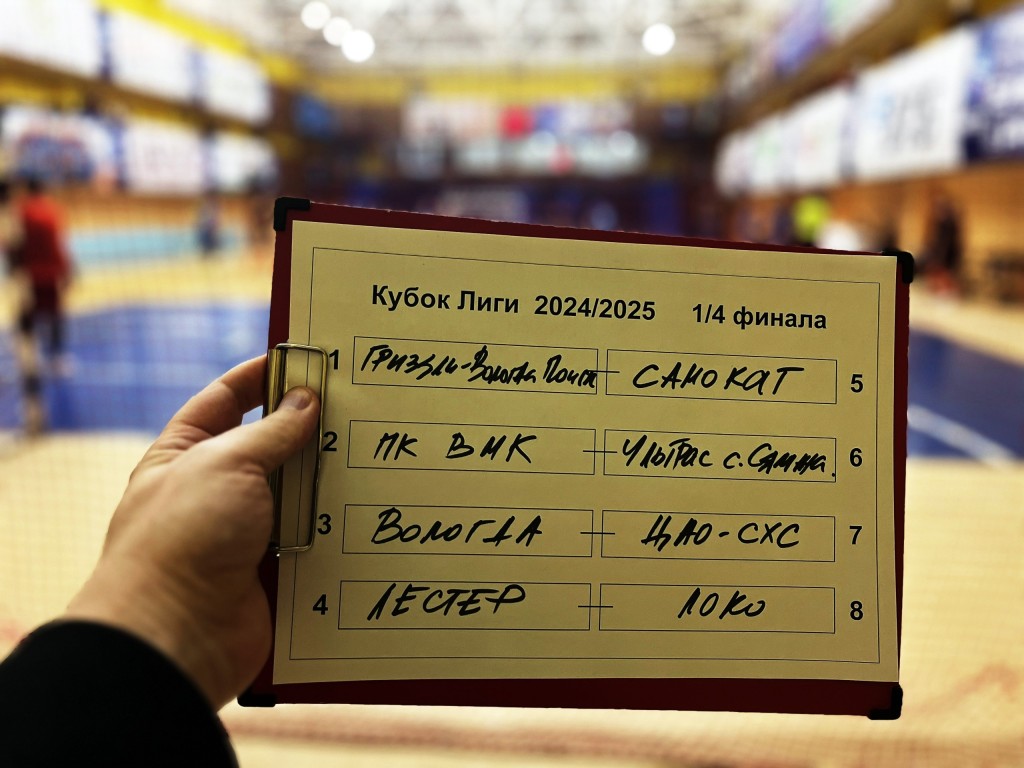 Кубок Лиги 2024/2025 1/4 финала
1 Гризли-Вологда Почта САМОКАТ 5
2 ПК ВМК Ультрас с. Самина. 6
3 ВОЛОГДА ЦАО-СХС 7
4 ЛЕСТЕР ЛОКО 8